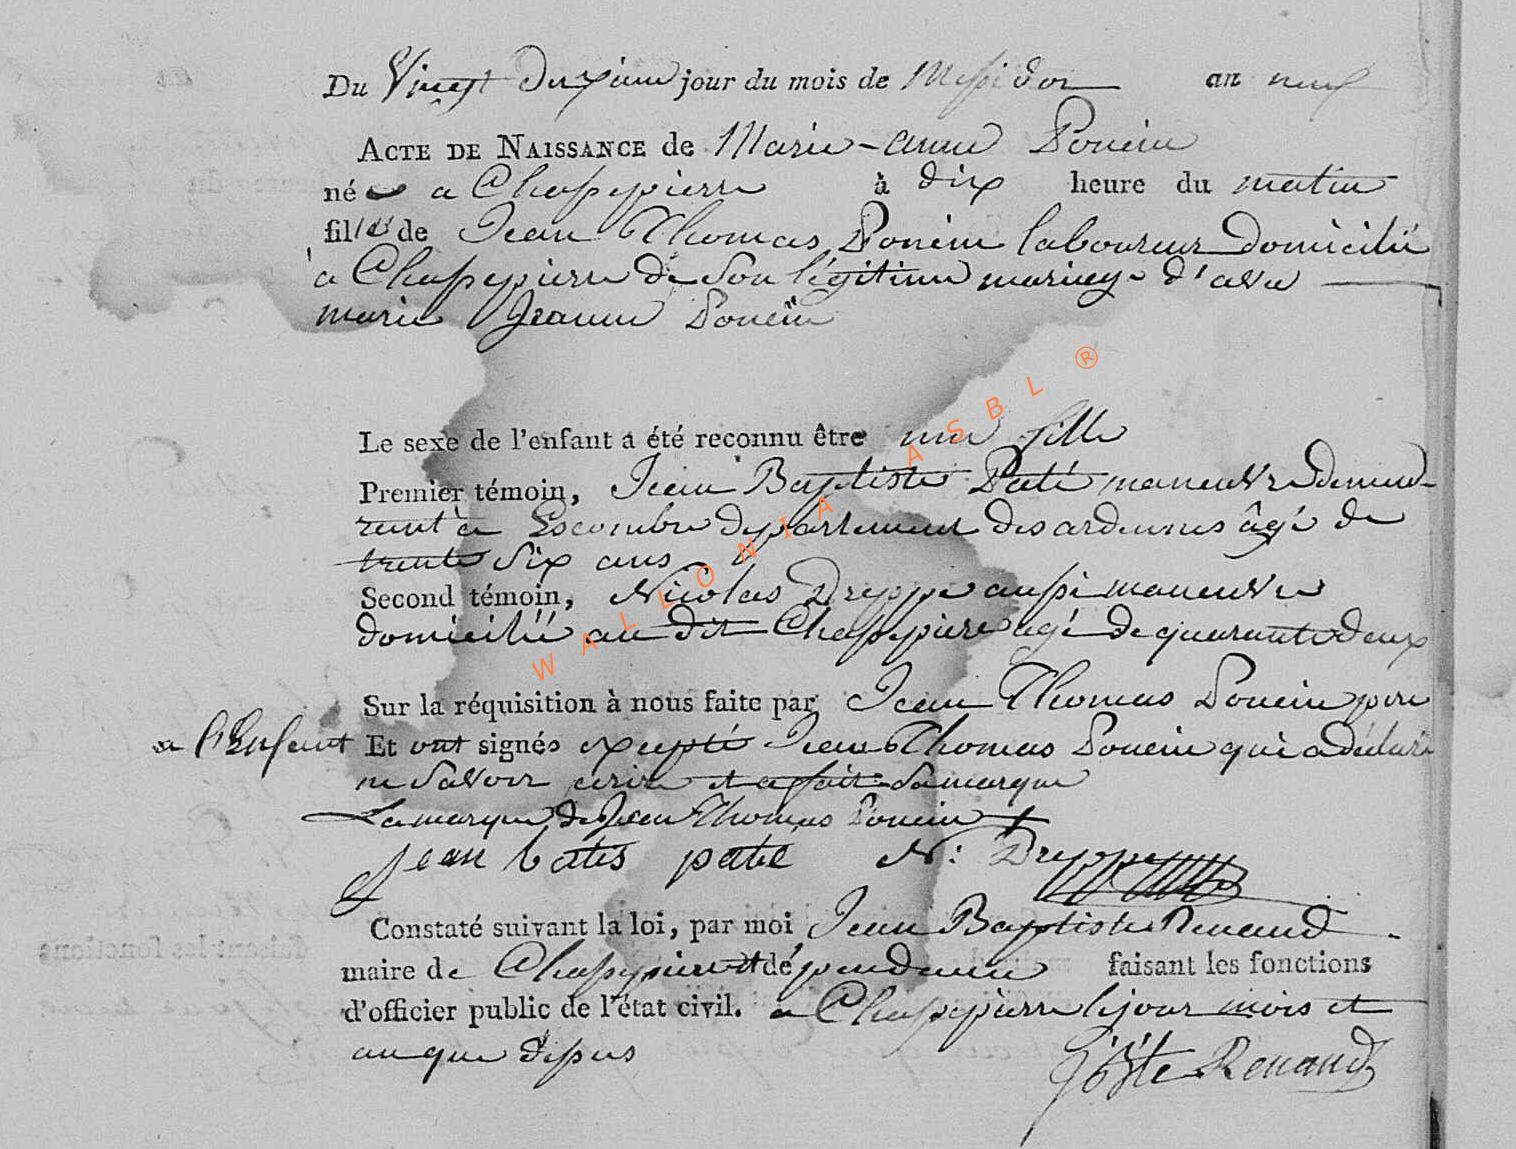 Du Vingt duxieme jour du mois de Messidor an neuf
ACTE DE NAISSANCE de Marie-anne Poncin
née a Chassepierre à dix heure du matin
fille de Jean Thomas Poncin laboureur Domicilié
à Chassepierre de son légitime mariage d'avec
marie Jeanne Poncin
Le sexe de l'enfant a été reconnu être une fille
Premier témoin, Jean Baptiste Paté maneuvre demeu-
rant à Escombre departement des ardennes âgé de
trente six ans
Second témoin, Nicolas Dreppe aussi maneuvre
domicilié au dit Chassepierre agé de quarante deux
Sur la réquisition à nous faite par Jean Thomas Poncin pere
de l'Enfant Et ont signés excepté Jean Thomas Poncin qui a déclaré
ne savoir ecrire et a fait sa marque
La marque de Jean Thomas Poncin +
Jean batis pate N: Dreppe
Constaté suivant la loi, par moi Jean Baptiste Renaud
maire de Chassepierre et dépendance faisant les fonctions
d'officier public de l'état civil. a Chassepierre le jour mois et
an que dessus
JBste Renaud
WALLONIA ASBL ®